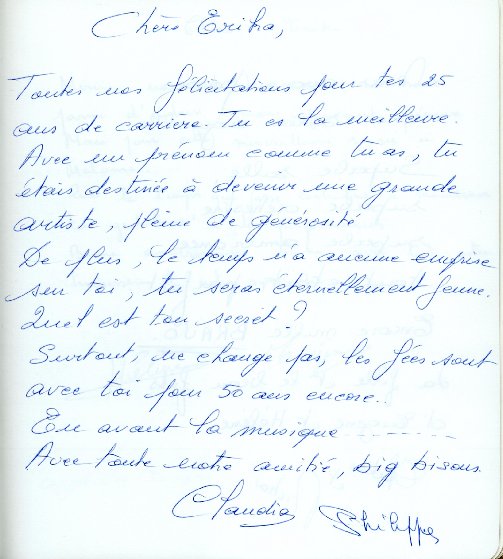 Chère Erika,
Toutes nos félicitations pour tes 25
ans de carrière. Tu es la meilleure.
Avec un prénom comme tu as, tu
étais destinée à devenir une grande
artiste, pleine de générosité
De plus, le temps n'a aucune emprise
sur toi, tu seras éternellement jeune.
Quel est ton secret ?
Surtout, ne change pas, les fées sont
avec toi pour 50 ans encore..
En avant la musique ...........
Avec toute notre amitié, big bisous
Claudia Philippe